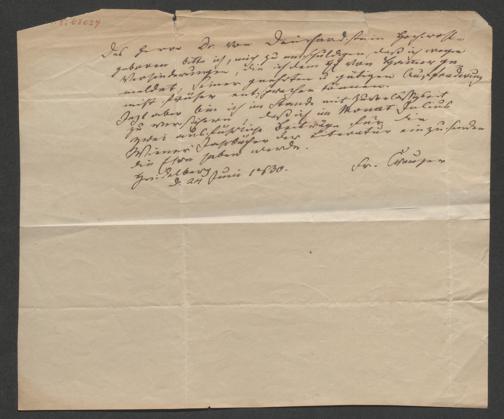 Des Herrn Dr von Deinhardstein Hochwohl-
geboren bitte ich, mich zu entschuldigen, daß ich wegen
Verhinderungen, die ich dem H. von Hammer ge-
meldet, Seiner geehrten u gütigen Aufforderung
nicht früher entsprechen können.
Jetzt aber bin ich im Stande mit Zuverlässigkeit
zu versichern, daß ich im Monat Julius
zwei ausführliche Beiträge für die
Wiener Jahrbücher der Literatur einzusenden
die Ehre haben werde.
Heidelberg
d. 24 Juni 1830.
Fr. Creuzer